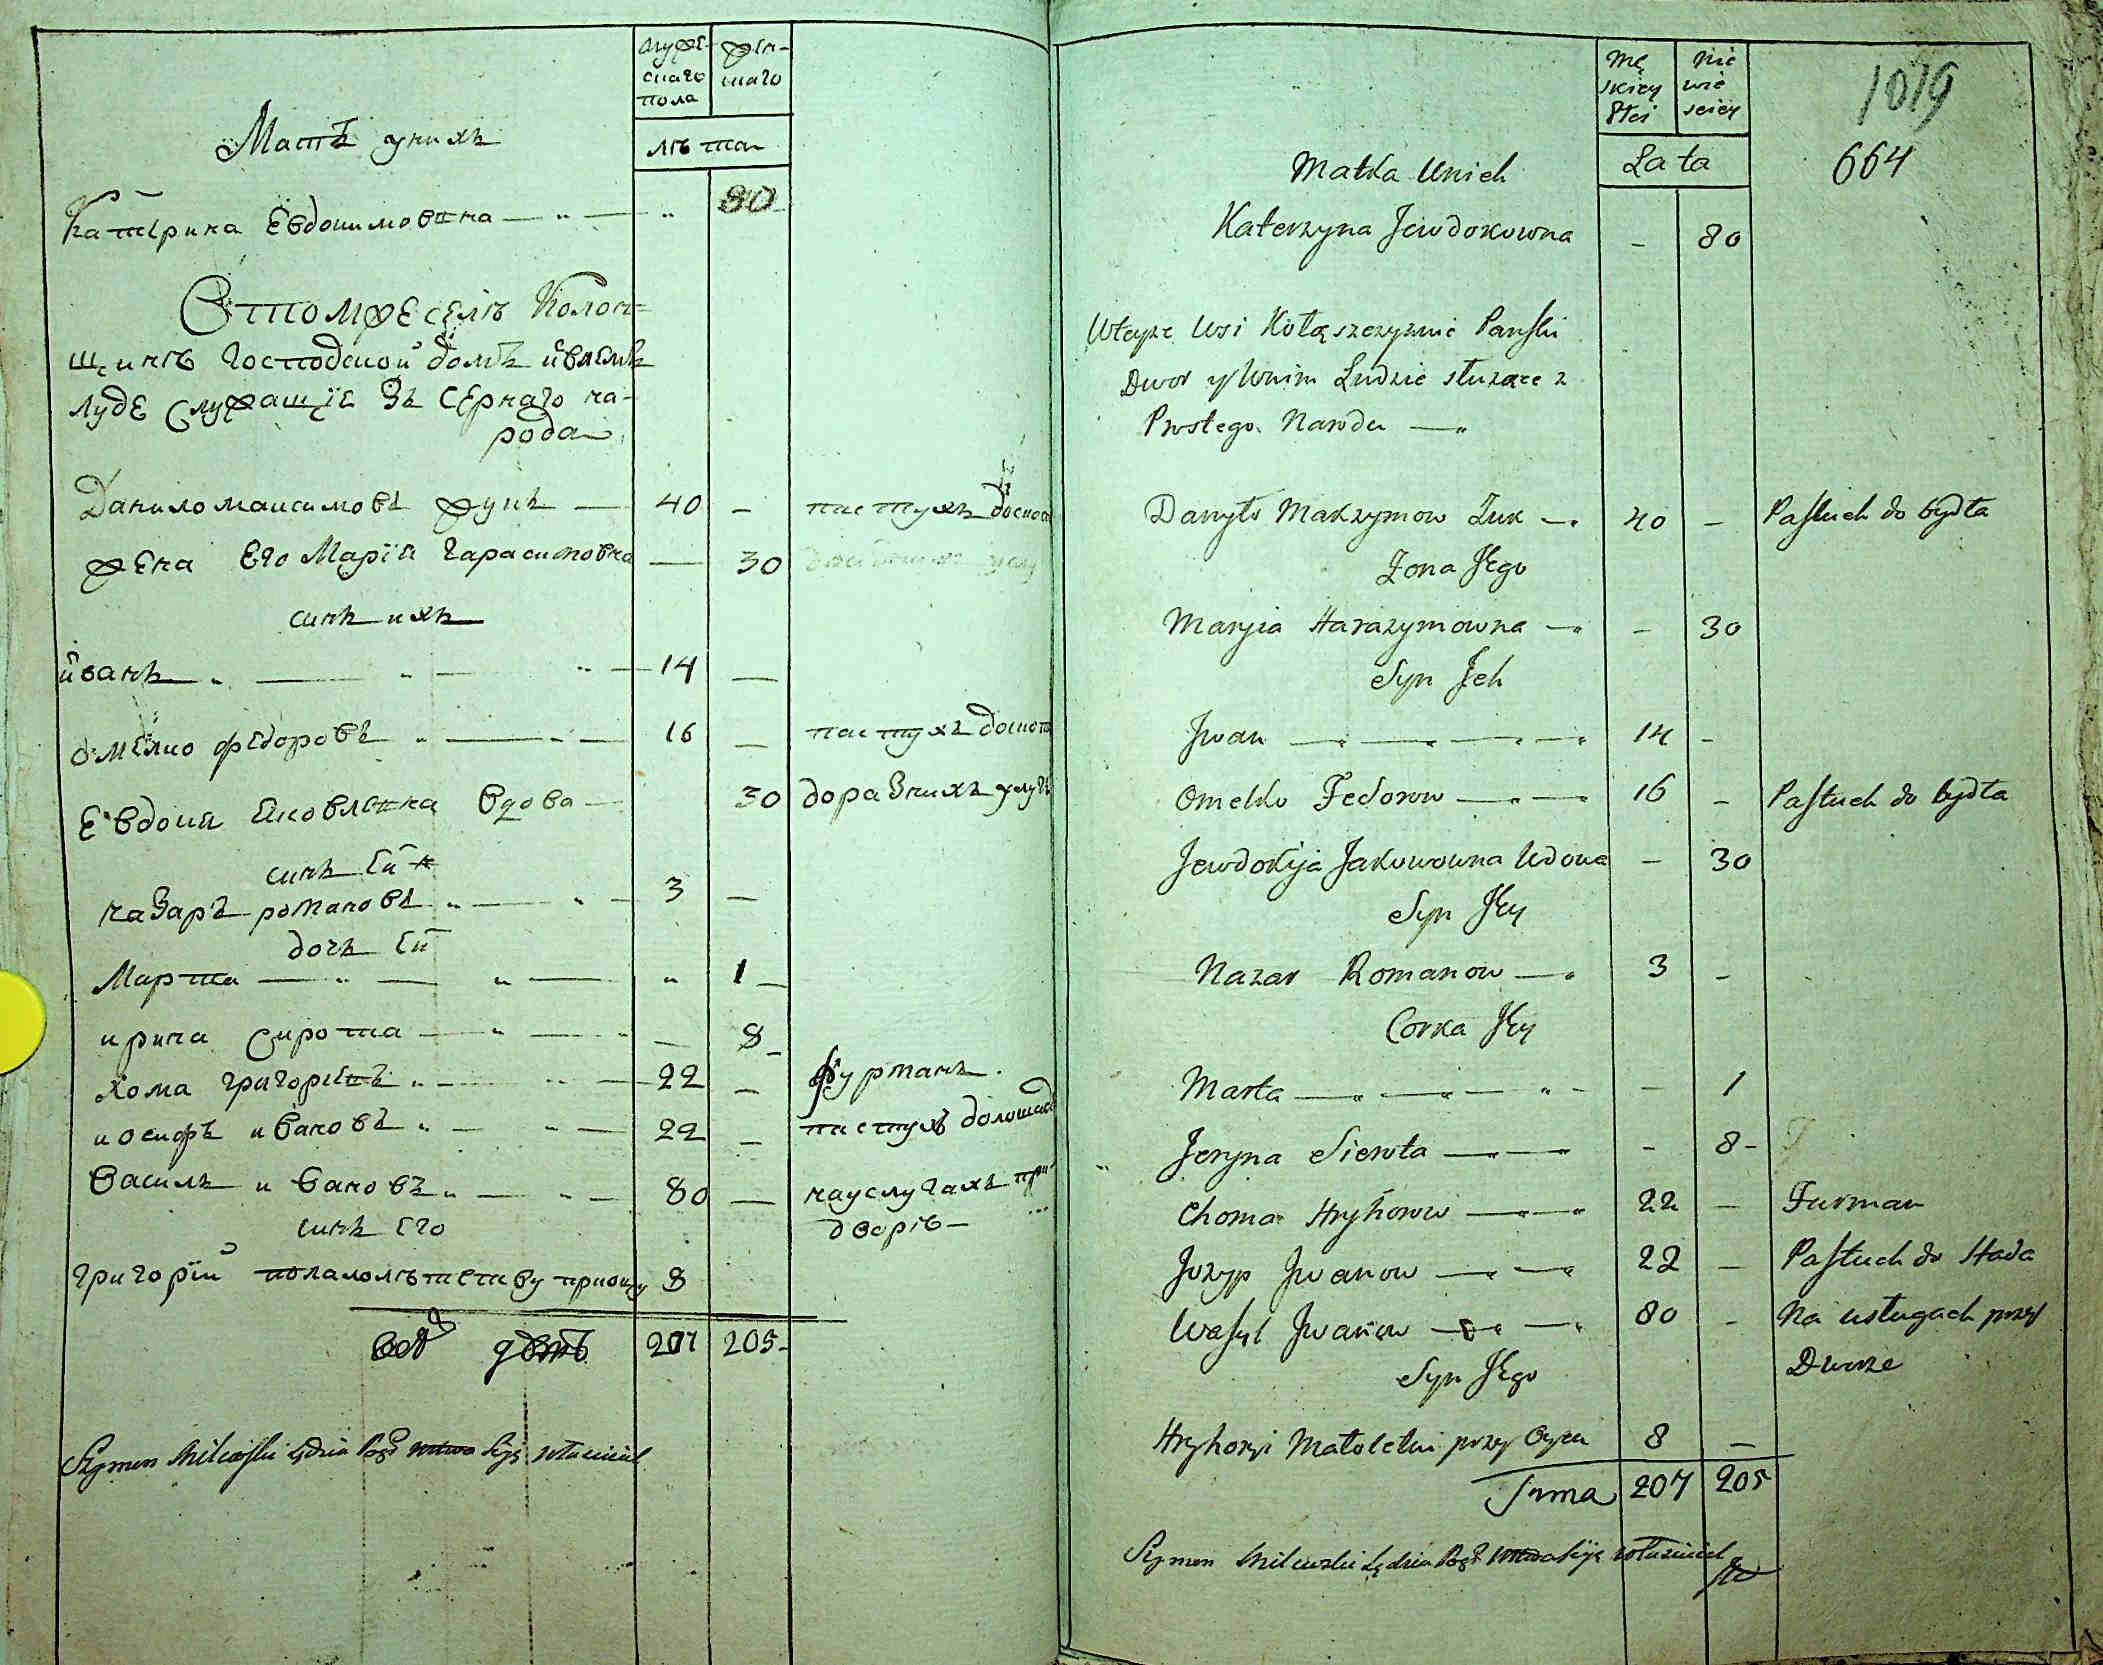 мужескаго пола женскаго
лѣта
Мать уних
Катерина Евдокимовна — „ — „ 80
Втомже селѣ Колон=
щинѣ господской домъ ивнемъ
люде служащіе зъ сернаго на-
рода
Данило максимовъ жукъ — 40 — пастухъ доскота
жена Его Марія гарасимовна — 30
синъ ихъ
иванъ „ — „ — „ — 14 —
омелко федоровъ „ — „ — 16 — пастухъ доскота
Евдокия яковлевна вдова — 30 доразнихъ услугъ
синъ Ей
назаръ романовъ „ — „ — 3 —
дочъ Ей
Марта — „ — „ — „ 1 —
ирина сирота — „ — — 8 —
хома григориевъ „ — „ — 22 — фурманъ.
иосифъ ивановъ „ — „ — 22 — пастухъ
василъ ивановъ „ — „ — 80 — науслугахъ при
дворѣ —
синъ Его
григорій 8
207 205-
Szymon Milewski
Mę
skiey
Płci
Nie
wie
sciey
1019
Lata
664
Matka Unich
Katerzyna Jewdokowna - 80
Wteyze Wsi Kołąszczyznie Panski
Dwor y Wnim Ludzie słuzące z
Prostego Narodu —„
Danyło Makzymow Zuk —„ 40 - Pastuch do bydła
Zona Jego
Maryia Harazymowna —„ - 30
Syn Jch
Jwan —„ —„ —„ —„ 14 -
Omelko Fedorow —„ —„ 16 - Pastuch do bydła
Jewdokija Jakowowna Wdowa - 30
Syn Jey
Nazar Romanow —„ 3 -
Corka Jey
Marta —„ —„ „ - - 1
Jeryna Sierota —„ —„ - 8 -
Choma Hryhorow —„ —„ 22 - Furman
Jozyp Jwanow —„ —„ 22 - Pastuch do Stada
Wasyl Jwanow —„ —„ 80 - Na usługach przy
Dworze
Syn Jego
Hryhoryi Małoletni przy Oycu 8 —
Suma 207 205
Szymon Milewski